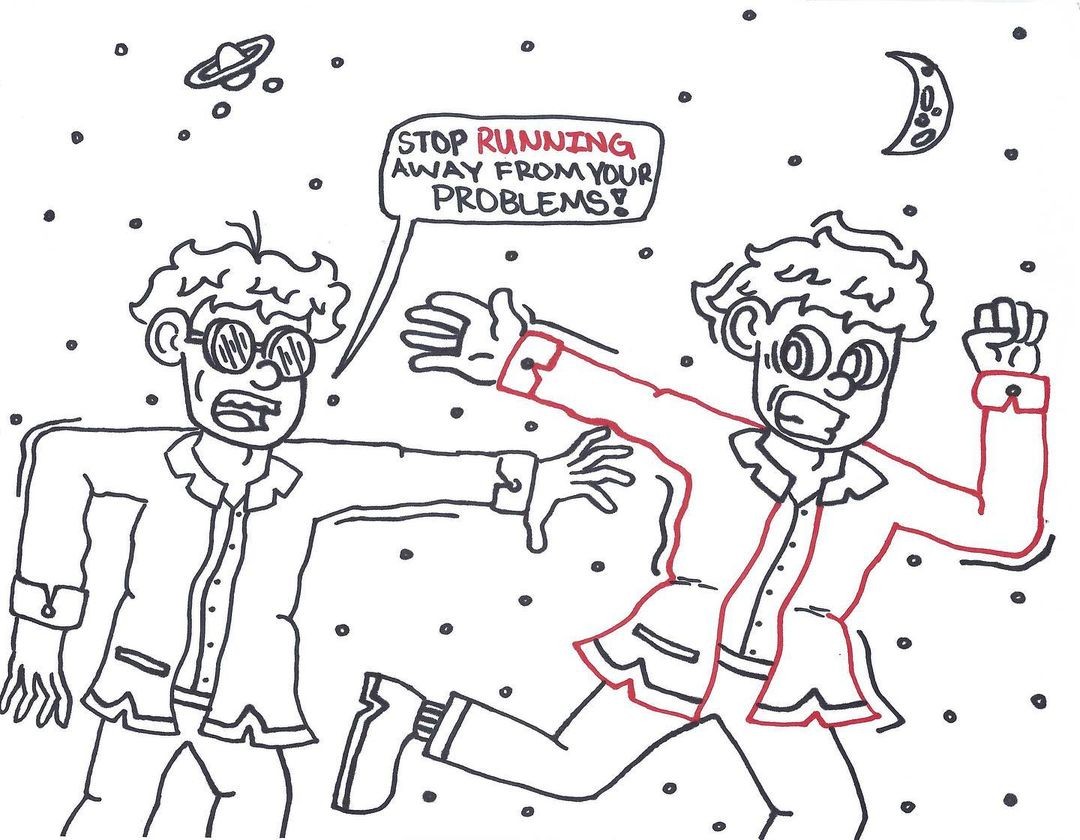 STOP RUNNING
AWAY FROM YOUR
PROBLEMS!